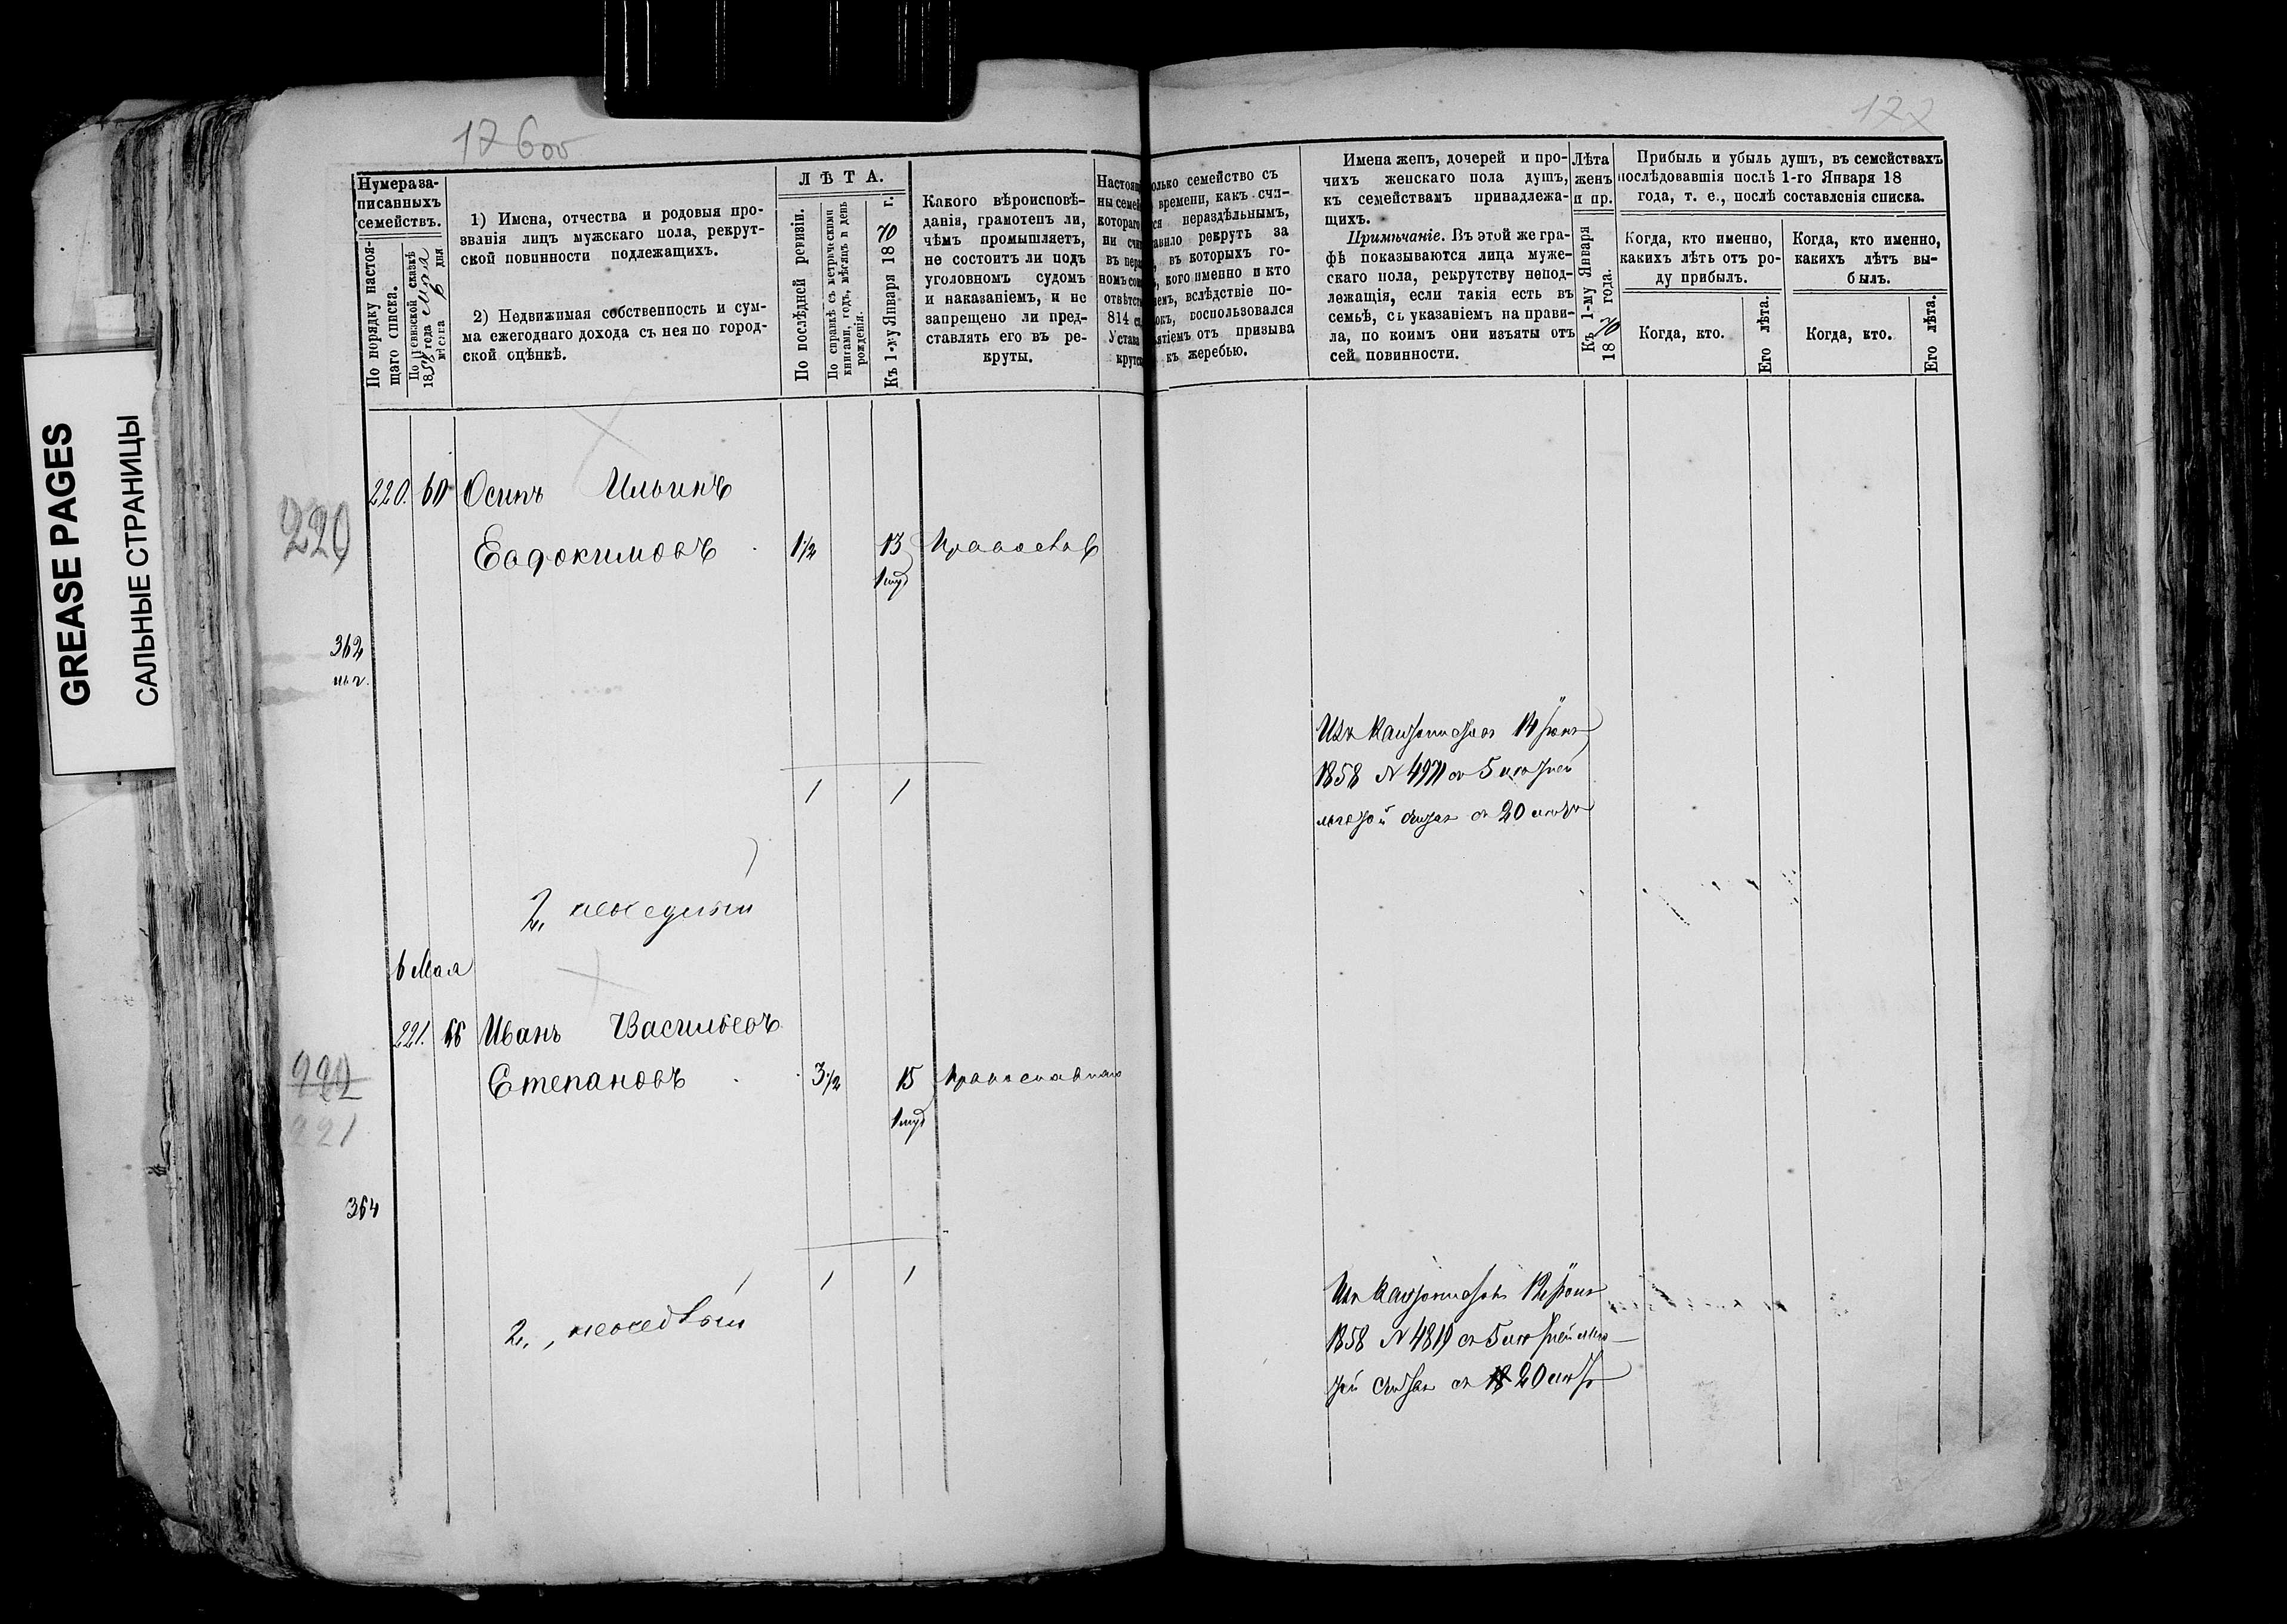 GREASE PAGES
САЛЬНЫЕ СТРАНИЦЫ
176 об
177
Нумера за-
писанныхъ
семействъ.
По порядку настоя-
щаго списка.
По ревизской сказкѣ
1858 года
мѣсяца 6 дня
1) Имена, отчества и родовыя про-
званія лицъ мужскаго пола, рекрут-
ской повинности подлежащихъ.
2) Недвижимая собственность и сум-
ма ежегоднаго дохода съ нея по город-
ской оцѣнкѣ.
ЛѢТА.
По послѣдней ревизіи.
По справкѣ съ метрическими
книгами, годъ, мѣсяцъ и день
рожденія.
Къ 1-му Января 1870 г.
Какого вѣроисповѣ-
данія, грамотенъ ли,
чѣмъ промышляетъ,
не состоитъ ли подъ
уголовномъ судомъ
и наказаніемъ, и не
запрещено ли пред-
ставлять его въ ре-
круты.
Настоящ
ны семей
котораго
ни счит
въ нера
номъ со
отвѣтст
814 с
Устава
крутс
олько семейство съ
времени, какъ счи-
ся нераздѣльнымъ,
авило рекрутъ за
, въ которыхъ го-
, кого именно и кто
емъ, вслѣдствіе по-
окъ, воспользовался
ятіемъ отъ призыва
къ жеребью.
Имена женъ, дочерей и про-
чихъ женскаго пола душъ,
къ семействамъ принадлежа-
щихъ.
Примѣчаніе. Въ этой же гра-
фѣ показываются лица муже-
скаго пола, рекрутству непод-
лежащія, если такія есть въ
семьѣ, съ указаніемъ на прави-
ла, по коимъ они изъяты отъ
сей повинности.
Лѣта
женъ
и пр.
Къ 1-му Января
1870 года.
Прибыль и убыль душъ, въ семействахъ
послѣдовавшія послѣ 1-го Января 18
года, т. е., послѣ составленія списка.
Когда, кто именно,
какихъ лѣтъ отъ ро-
ду прибылъ.
Когда, кто именно,
какихъ лѣтъ вы-
былъ.
Когда, кто.
Его лѣта.
Когда, кто.
Его лѣта.
220. 60 Осипъ Ильинъ
220
Евдокимовъ 1½ 13 Православ
362
1 1
Изъ Кантонистовъ 14
1858 № 4971 5
20
2,
6 Мая
221. 66 Иванъ Васильевъ
Степановъ 3½ 15 Православнаго
221
364
1 1
Изъ Кантонистовъ 12
1858 № 4819 5
20
2,